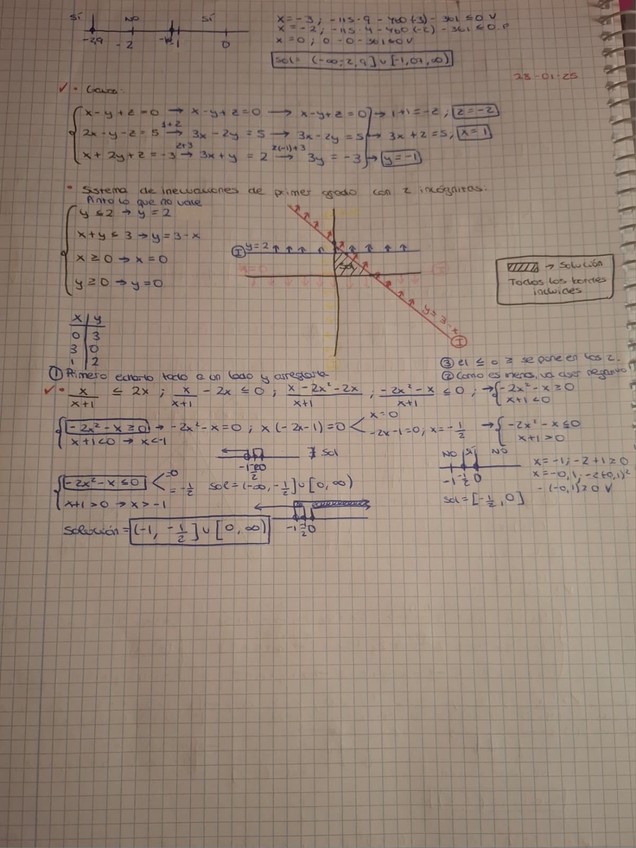 SÍ NO SÍ
-2,9 -2 -1 0
x=0; 0-0-361≤0 V
23-01-25
x-y+z=0 → x-y+z=0 → x-y+z=0 → 1+1=-z; z=-2
2x-y-z=5 1+2→ 3x-2y=5 → 3x-2y=5 → 3x+2=5; x=1
x+2y+z=-3 2+3→ 3x+y=2 2(-1)+3→ 3y=-3 → y=-1
• Sistema de inecuaciones de primer grado con 2 incógnitas.
Anoto lo que no vale
y≤2 → y=2
x+y≤3 → y=3-x
x≥0 → x=0
y≥0 → y=0
I y=2
y=3-x
I
→ Solución
Todos los bordes incluidos
x y
0 3
3 0
1 2
① Primero echarlo todo a un lado y arreglarlo
③ el ≤ o ≥ se pone en los 2.
② Como es menos, va a ser negativo
x/(x+1) ≤ 2x; x/(x+1) - 2x ≤ 0; (x-2x²-2x)/(x+1); (-2x²-x)/(x+1) ≤ 0; → -2x²-x≥0
x+1<0
-2x²-x≥0 → -2x²-x=0; x(-2x-1)=0 x=0
-2x-1=0; x=-1/2 → -2x²-x≤0
x+1<0 → x<-1 x+1>0
∄ sol
-1 -1/2 0
NO SÍ NO
-1 -1/2 0
x=-1; -2+1≥0
-2x²-x≤0 =0
=-1/2 sol=(-∞, -1/2]∪[0, ∞)
x+1>0 → x>-1
sol=[-1/2, 0]
-1 -1/2 0
Solución= (-1, -1/2]∪[0, ∞)